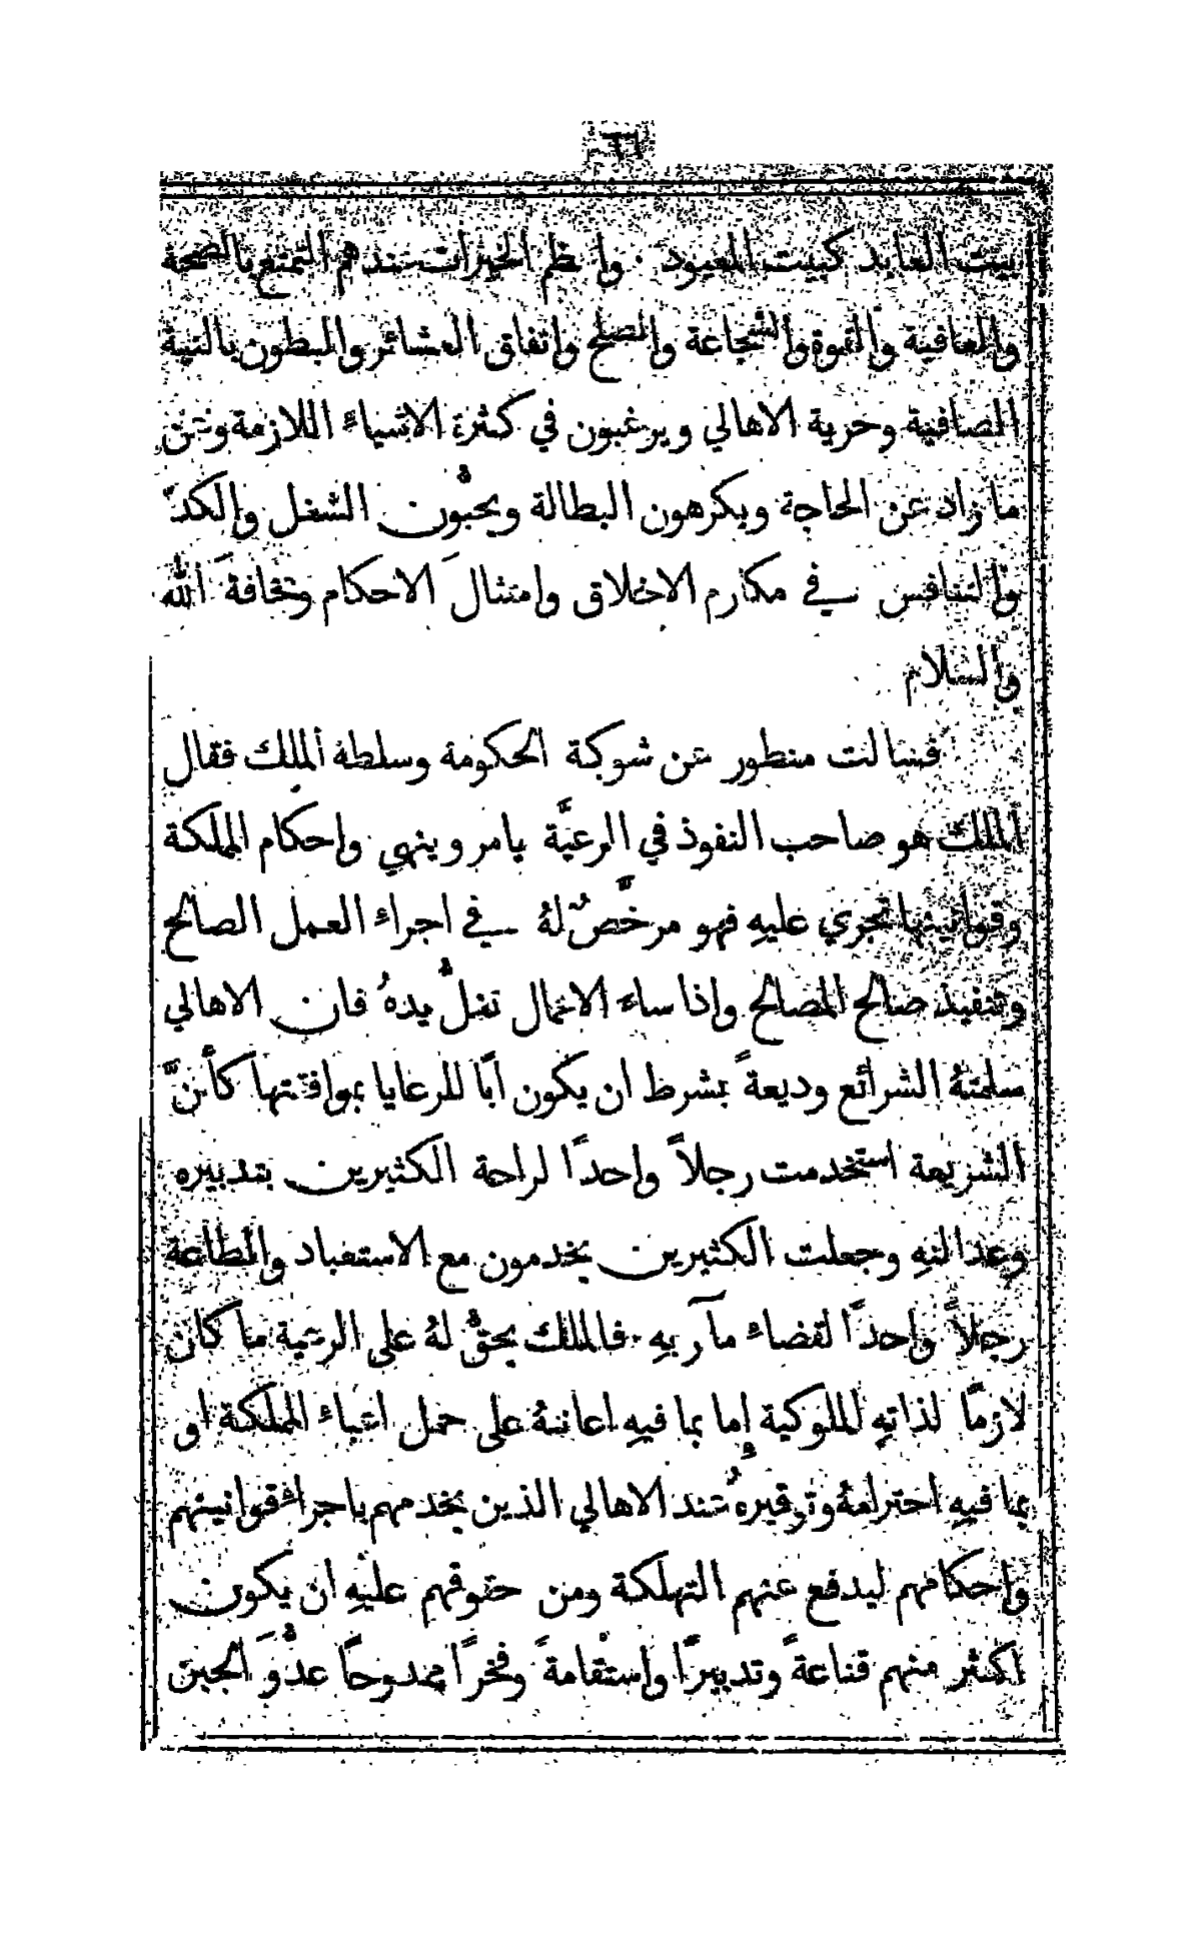 ٦٦
بيت العابد كبيت المعبود · واعظم الخيرات عندهم التمتع بالصحة
والعافية والقوة والشجاعة والصلح واتفاق العشائر والبطون بالنية
الصافية وحرية الاهالي ويرغبون في كثرة الاشياء اللازمة وتمن
ما زاد عن الحاجة ويكرهون البطالة ويحبُّون الشغل والكدّ
والتنافس في مكارم الاخلاق وامتثالَ الاحكام ومخافةَ الله
والسلام
فسالت منطور عن شوكة الحكومة وسلطة الملك فقال
الملك هو صاحب النفوذ في الرعيَّة يامر وينهي واحكام المملكة
وقوانينها تجري عليهِ فهو مرخَّصٌ لهُ في اجراء العمل الصالح
وتنفيذ صالح المصالح واذا ساء الاعمال تغلُّ يدهُ فان الاهالي
سلمتهُ الشرائع وديعةً بشرط ان يكون ابًا للرعايا بموافقتها كأنَّ
الشريعة استخدمت رجلاً واحدًا لراحة الكثيرين بتدبيره
وعدالتهِ وجعلت الكثيرين يخدمون مع الاستعباد والطاعة
رجلاً واحدًا لقضاء مآربهِ · فالملك يحقُّ لهُ على الرعية ما كان
لازمًا لذاتهِ الملوكية إما بما فيهِ اعانتهُ على حمل اعباء المملكة او
بما فيهِ احترامهُ وتوقيرهُ عند الاهالي الذين يخدمهم باجراء قوانينهم
واحكامهم ليدفع عنهم التهلكة ومن حقوقهم عليهِ ان يكون
اكثر منهم قناعةً وتدبيرًا واستقامةً وفخرًا ممدوحًا عدُوَّ الجبن